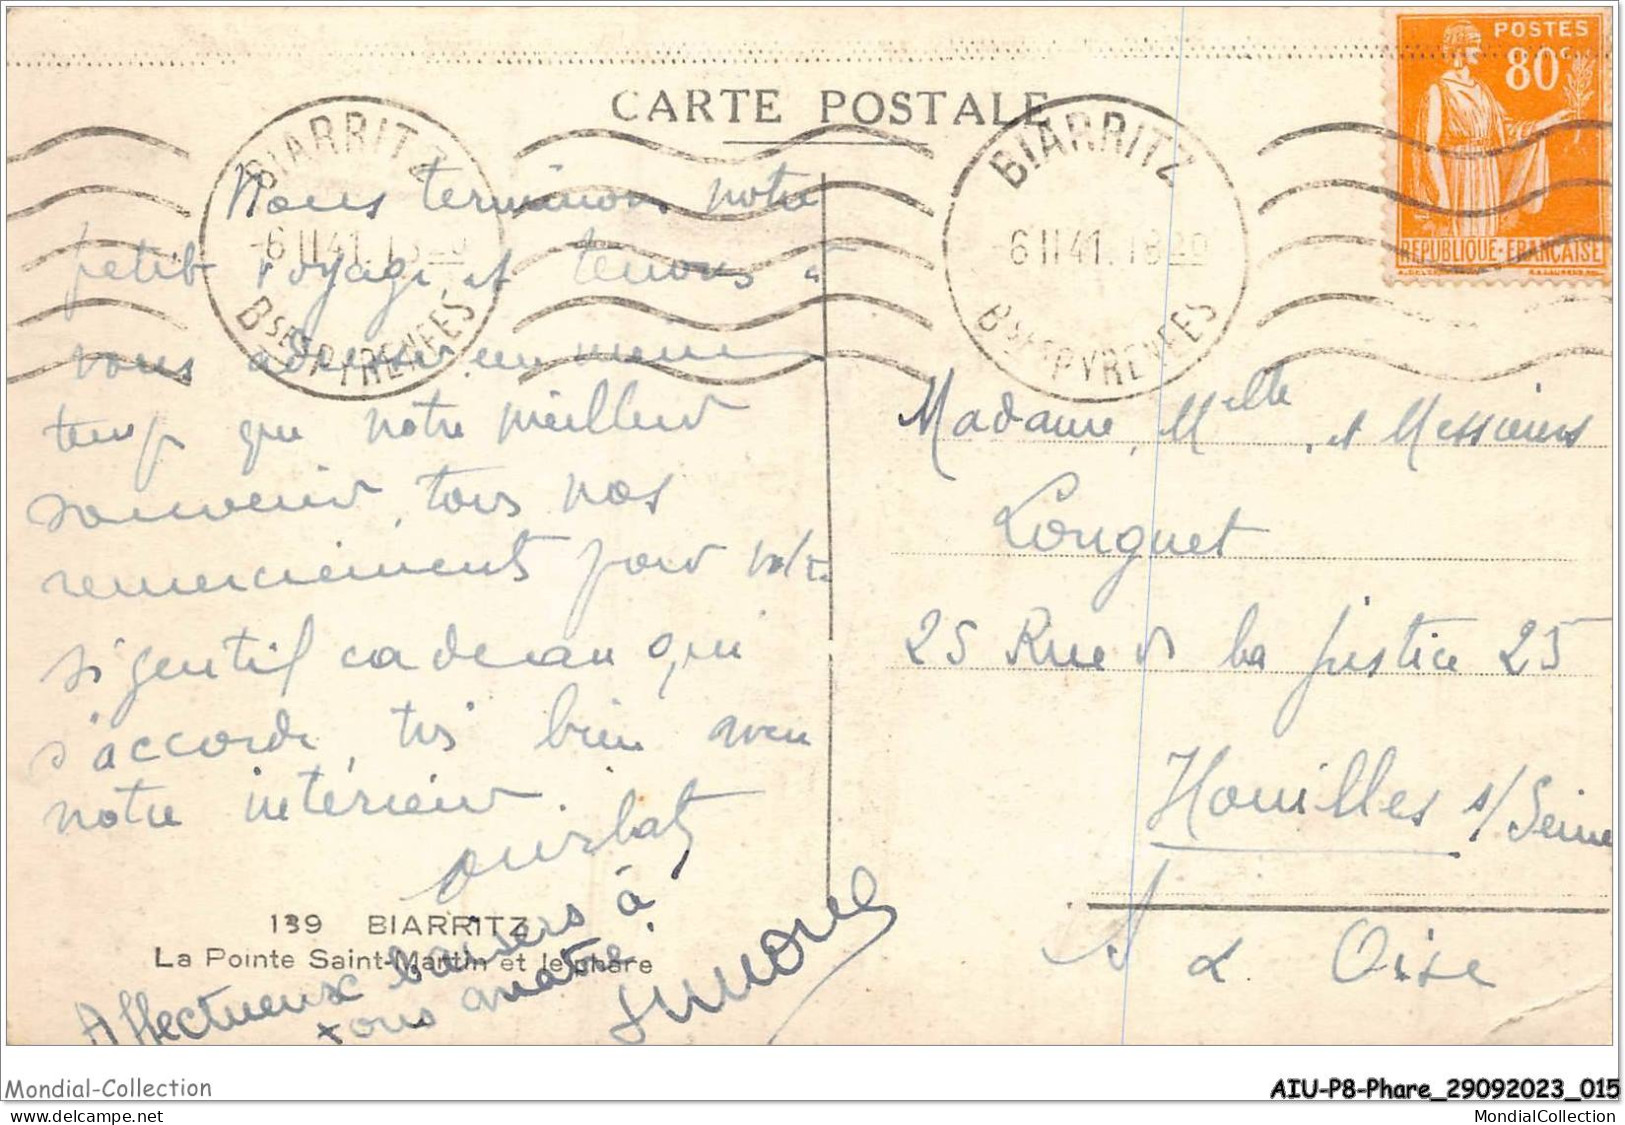 CARTE POSTALE
POSTES
80c
REPUBLIQUE-FRANCAISE
BIARRITZ
-6 II 41. 18 20
Bses PYRENEES
BIARRITZ
-6 II 41. 18 20
Bses PYRENEES
Nous terminons notre
petit voyage et tenons à
vous adresser en meme
temps que notre meilleur
souvenir, tous nos
remerciements pour votre
si gentil cadeau qui
s'accorde, très bien avec
notre intérieur.
Affectueux baisers à
tous quatre.
Simone
139 BIARRITZ
La Pointe Saint-Martin et le phare
Madame, Melle, et Messieurs
Longuet
25 Rue de la justice 25
Houilles s/Seine
S & Oise
Mondial-Collection
AIU-P8-Phare_29092023_015
www.delcampe.net
MondialCollection